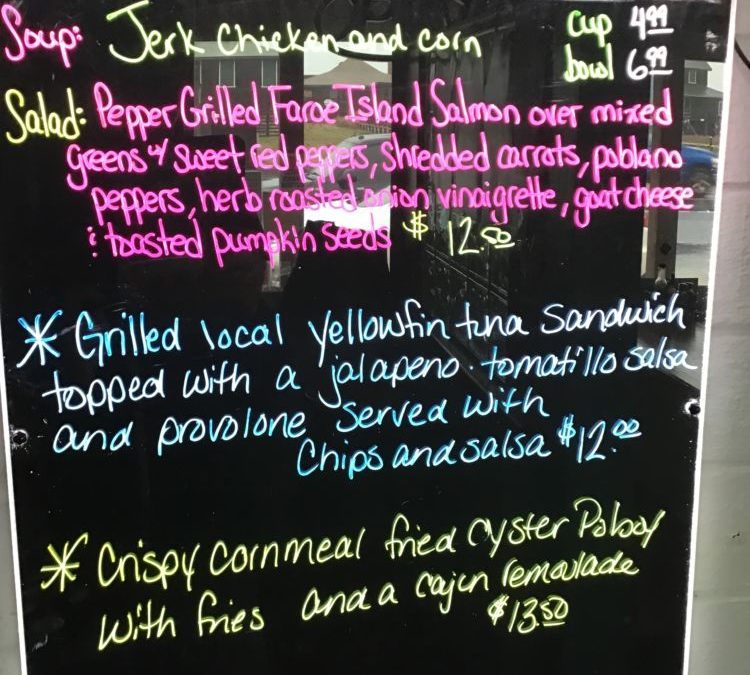 Soup: Jerk Chicken and corn cup 4.99
bowl 6.99
Salad: Pepper Grilled Faroe Island Salmon over mixed
greens w/ sweet red peppers, shredded carrots, poblano
peppers, herb roasted onion vinaigrette, goat cheese
& toasted pumpkin seeds $12.50
* Grilled local yellowfin tuna sandwich
topped with a jalapeno-tomatillo salsa
and provolone served with
Chips and salsa $12.00
* Crispy cornmeal fried oyster Poboy
with fries and a cajun remoulade
$13.50